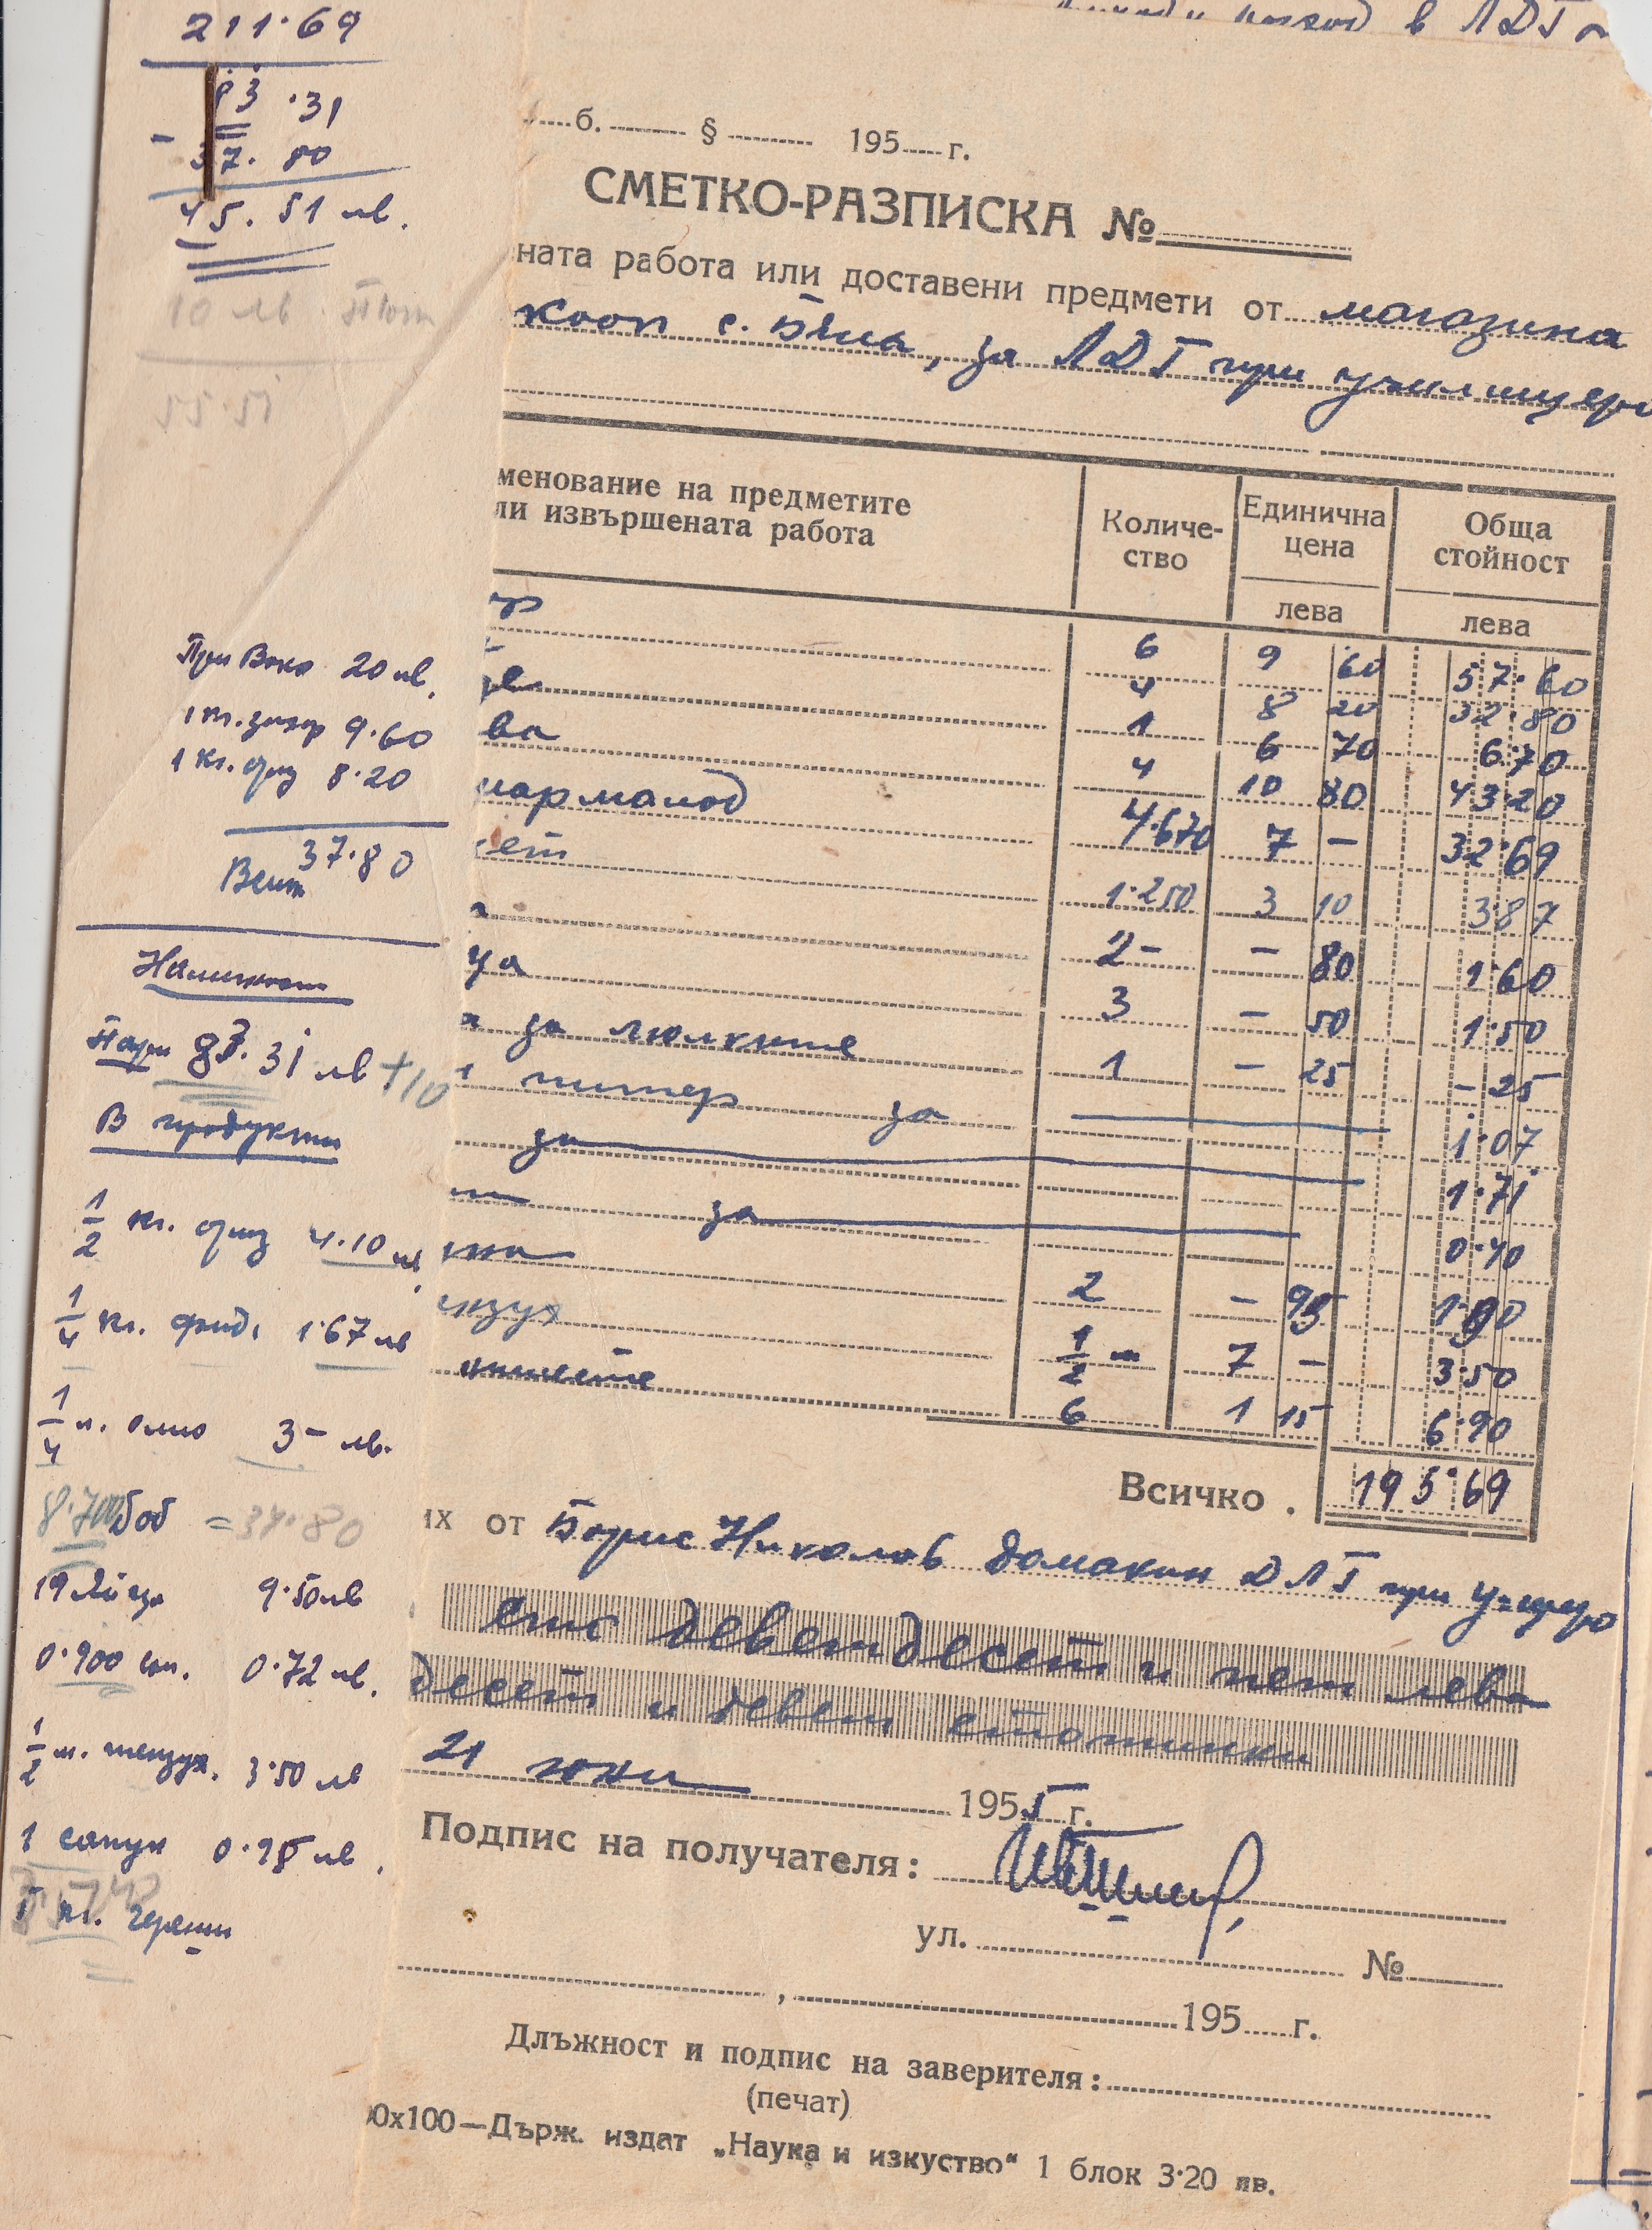 в ЛДГ
211·69
83·31
- 37. 80
45. 51 лв.
10 лв.
55·51
При Вока 20 лв.
1 кг. захар 9·60
1 кг. ориз 8·20
37·80
Наличност
Пари 83. 31 лв +10
В продукти
1/2 кг. ориз 4·10 лв.
1/4 кг. фиде 1·67 лв
1/4 л. олио 3 – лв.
8·700 боб = 34·80
19 Яйца 9·50 лв
0·900 сол. 0·72 лв.
1/2 м. тензух. 3·50 лв
1 сапун 0·95 лв.
кг. череши
б. § 195 г.
СМЕТКО-РАЗПИСКА №
ната работа или доставени предмети от магазина
кооп с. Бяла, за ЛДГ при училището
менование на предметите
ли извършената работа
Количе-
ство
Единична
цена
Обща
стойност
лева лева
6 9 60 57·60
4 8 20 32·80
1 6 70 6·70
ва 4 10 80 43·20
мармалад 4·670 7 – 32·69
1·250 3 10 3·87
2 – – 80 1·60
ца 3 – 50 1·50
за люлките 1 – 25 – 25
пипер за 1·07
за 1·71
за 0·40
2 – 95 1·90
нзух 1/2 м 7 – 3·50
кишета 6 1 15 6·90
Всичко . 195·69
их от Борис Николов домакин ДЛГ при у-щето
сто деветдесет и пет лева
десет и девет стотинки
21 юни 1955 г.
Подпис на получателя:
ул. №
, 195 г.
Длъжност и подпис на заверителя:
(печат)
0х100—Държ. издат „Наука и изкуство“ 1 блок 3·20 лв.